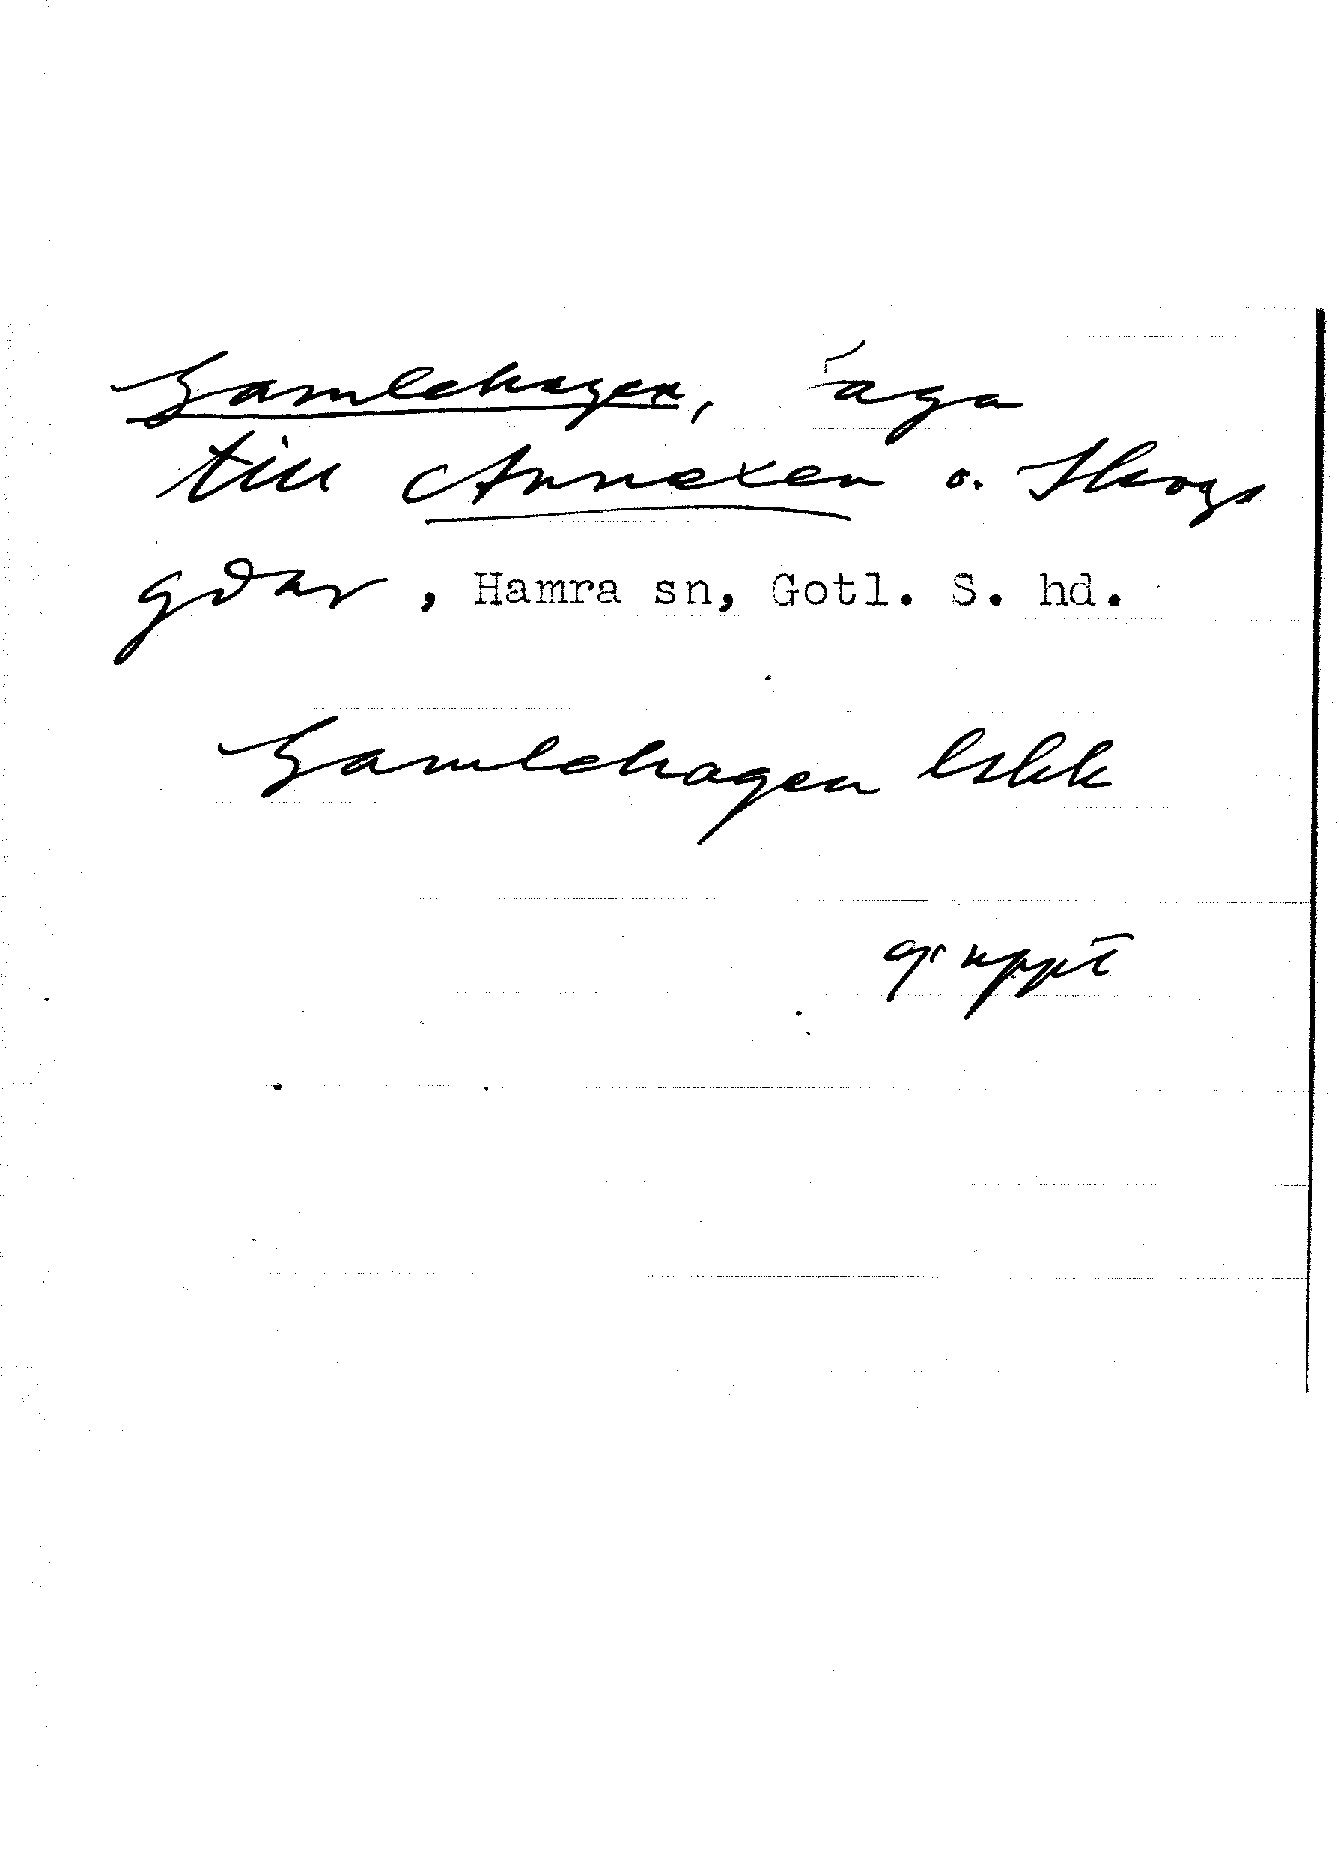 Gamlehagen, äga
till Annexen o. Skogs
gdar, Hamra sn, Gotl. S. hd.
Gamlehagen lskk
gr uppt